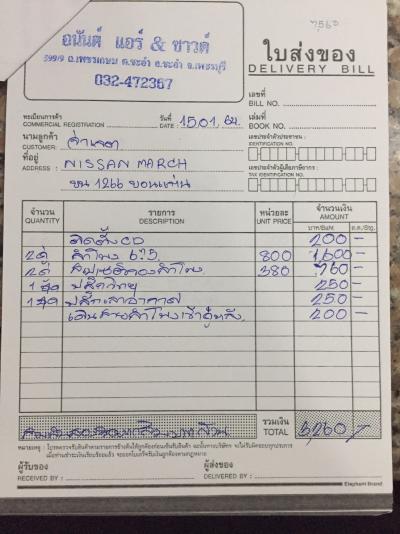 อนันต์ แอร์ & ซาวด์
599/9 ถ.เพชรเกษม ต.ชะอำ อ.ชะอำ จ.เพชรบุรี
032-472367
ใบส่งของ
DELIVERY BILL
เลขที่
BILL NO.
ทะเบียนการค้า
COMMERCIAL REGISTRATION
วันที่
DATE : 15.01.
เล่มที่
BOOK NO.
นามลูกค้า
CUSTOMER:
เลขประจำตัวประชาชน :
IDENTIFICATION NO.
ที่อยู่
ADDRESS : NISSAN MARCH
เลขประจำตัวผู้เสียภาษีอากร :
TAX IDENTIFICATION NO.
1266 ขอนแก่น
จำนวน รายการ หน่วยละ จำนวนเงิน
QUANTITY DESCRIPTION UNIT PRICE AMOUNT
บาท/Baht. ส.ต./Stg.
ติดตั้ง CD 200 -
ลำโพง 675 800 1,600 -
380 760 -
ปลั๊กวิทยุ 250 -
ปลั๊กเสาอากาศ 250 -
เดินสายลำโพงเข้าตู้หลัง 200 -
รวมเงิน
TOTAL 3,260 -
ผู้รับของ
RECEIVED BY :
ผู้ส่งของ
DELIVERED BY :
Elephant Brand